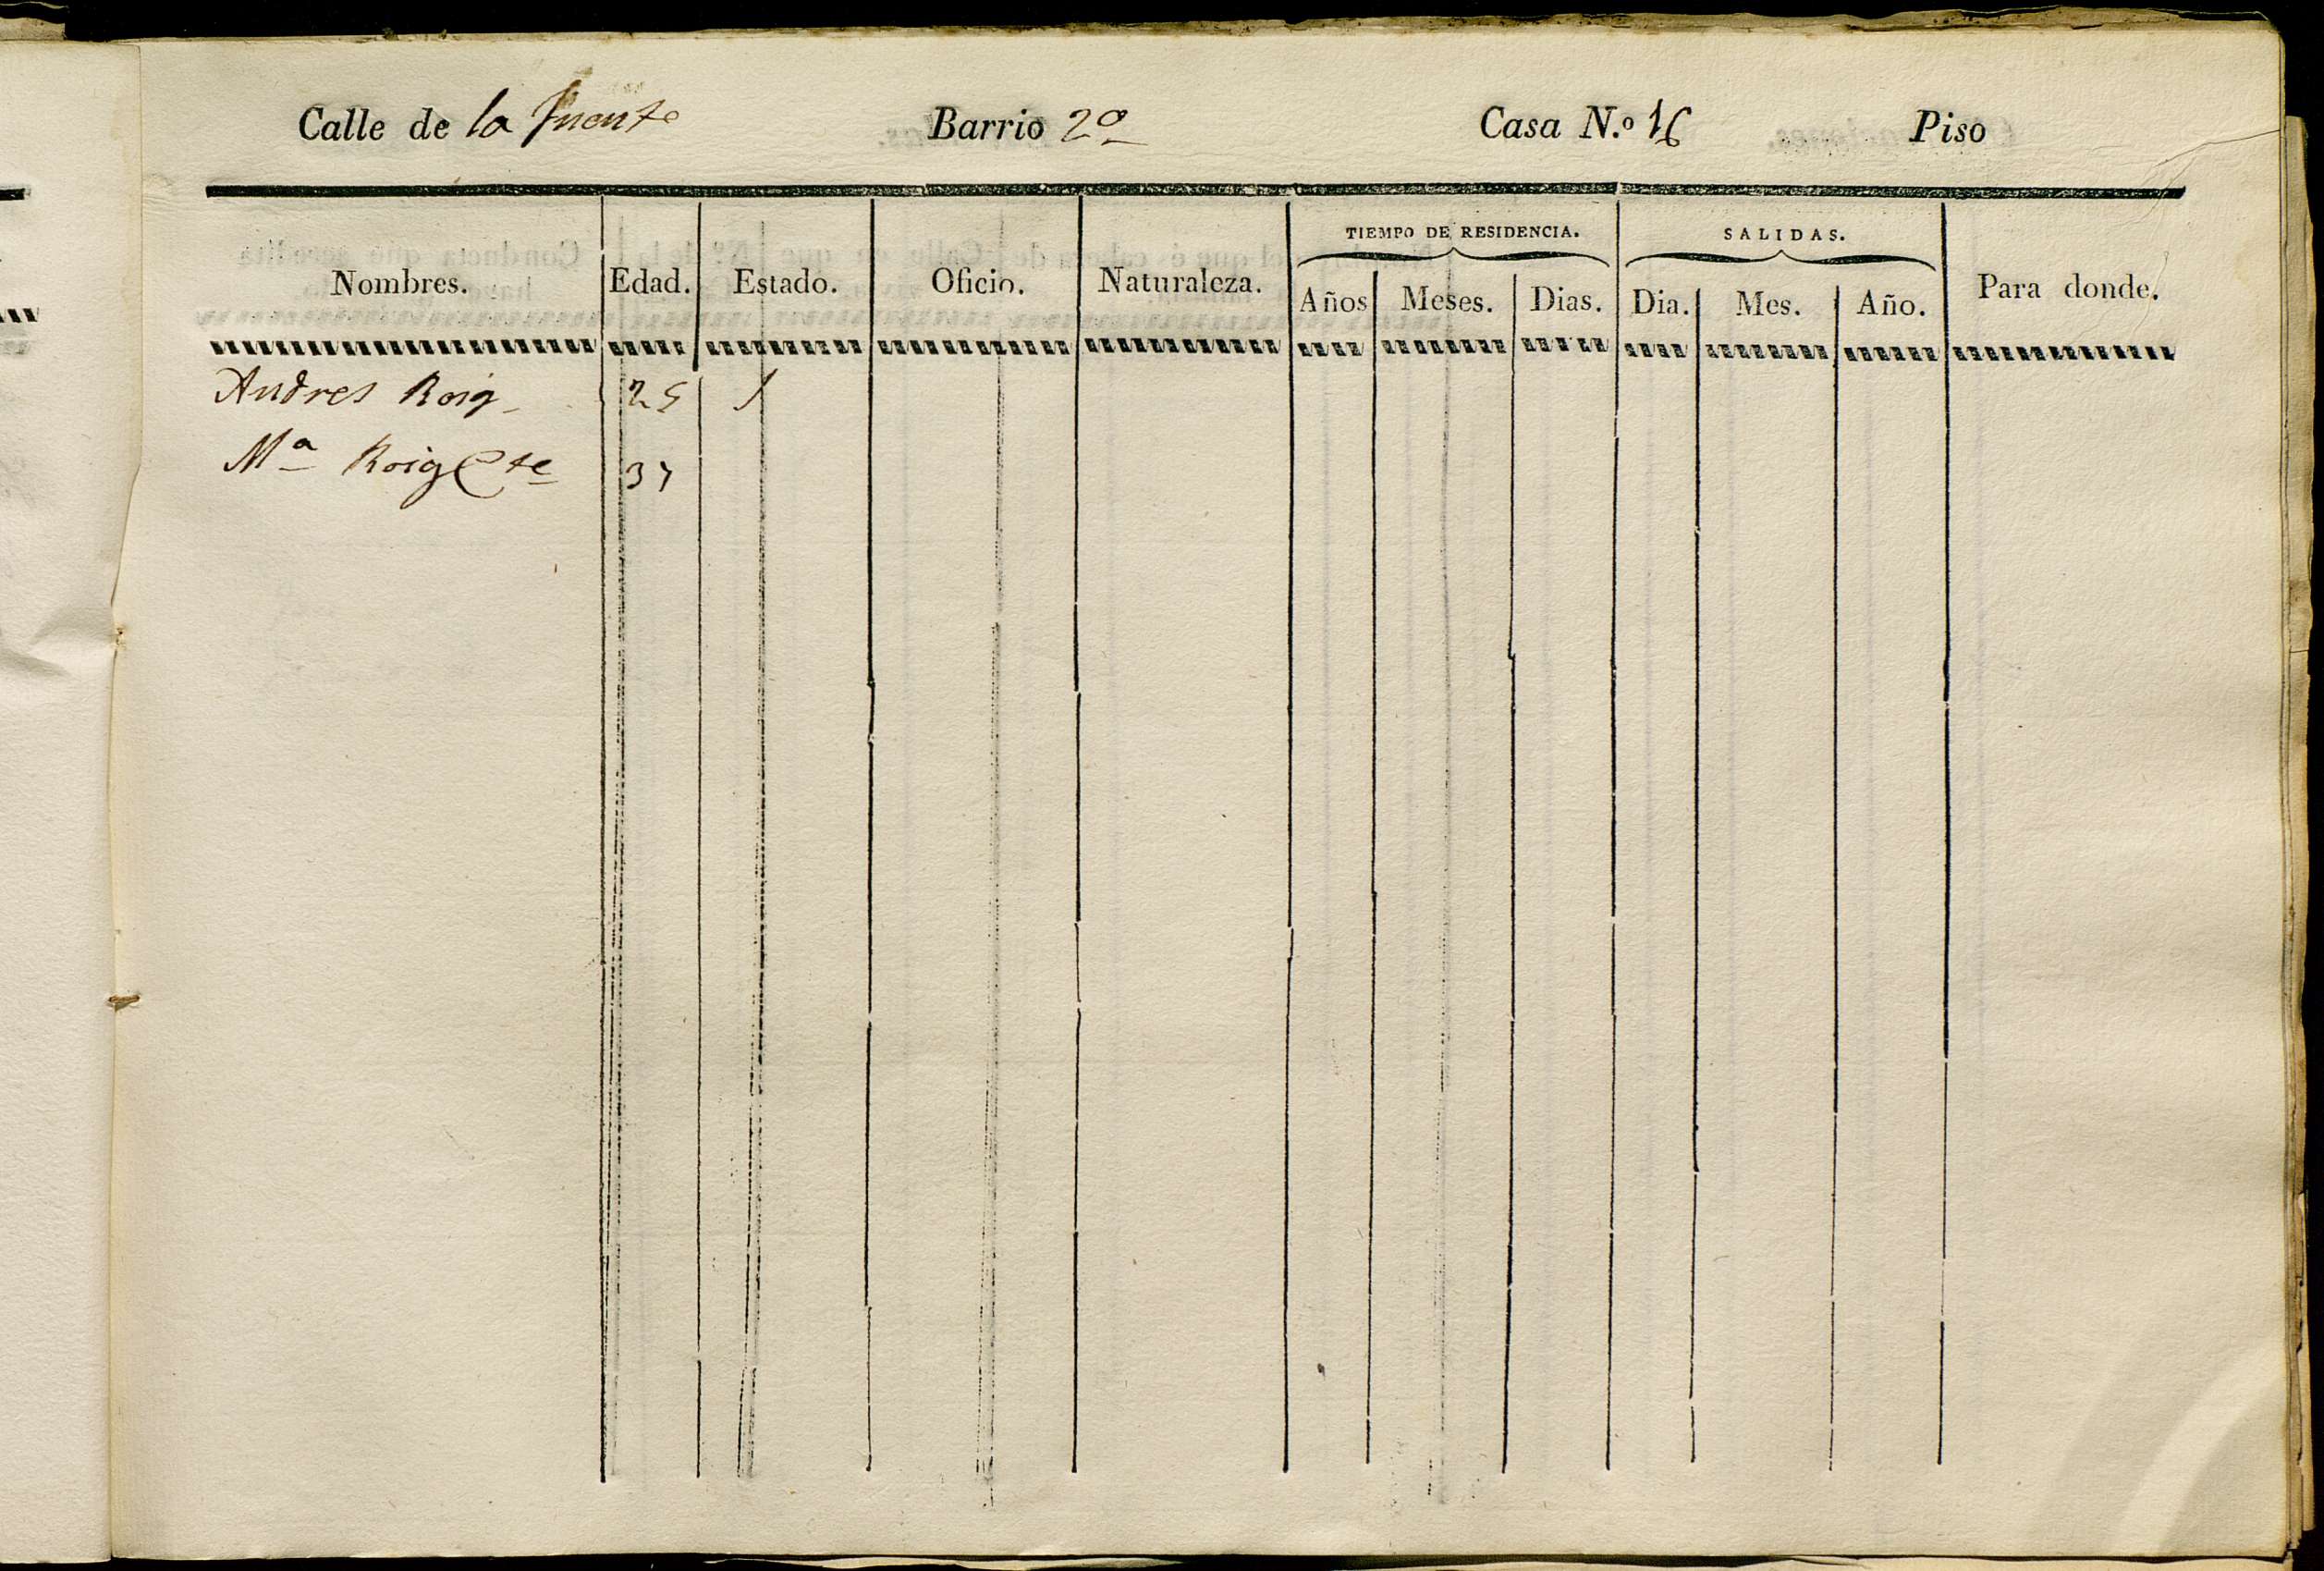 Calle de la fuente Barrio 2º Casa N.º 16 Piso
TIEMPO DE RESIDENCIA. SALIDAS.
Nombres. Edad. Estado. Oficio. Naturaleza. Años Meses. Dias. Dia. Mes. Año. Para donde.
Andres Roig 25
Mª Roig 37